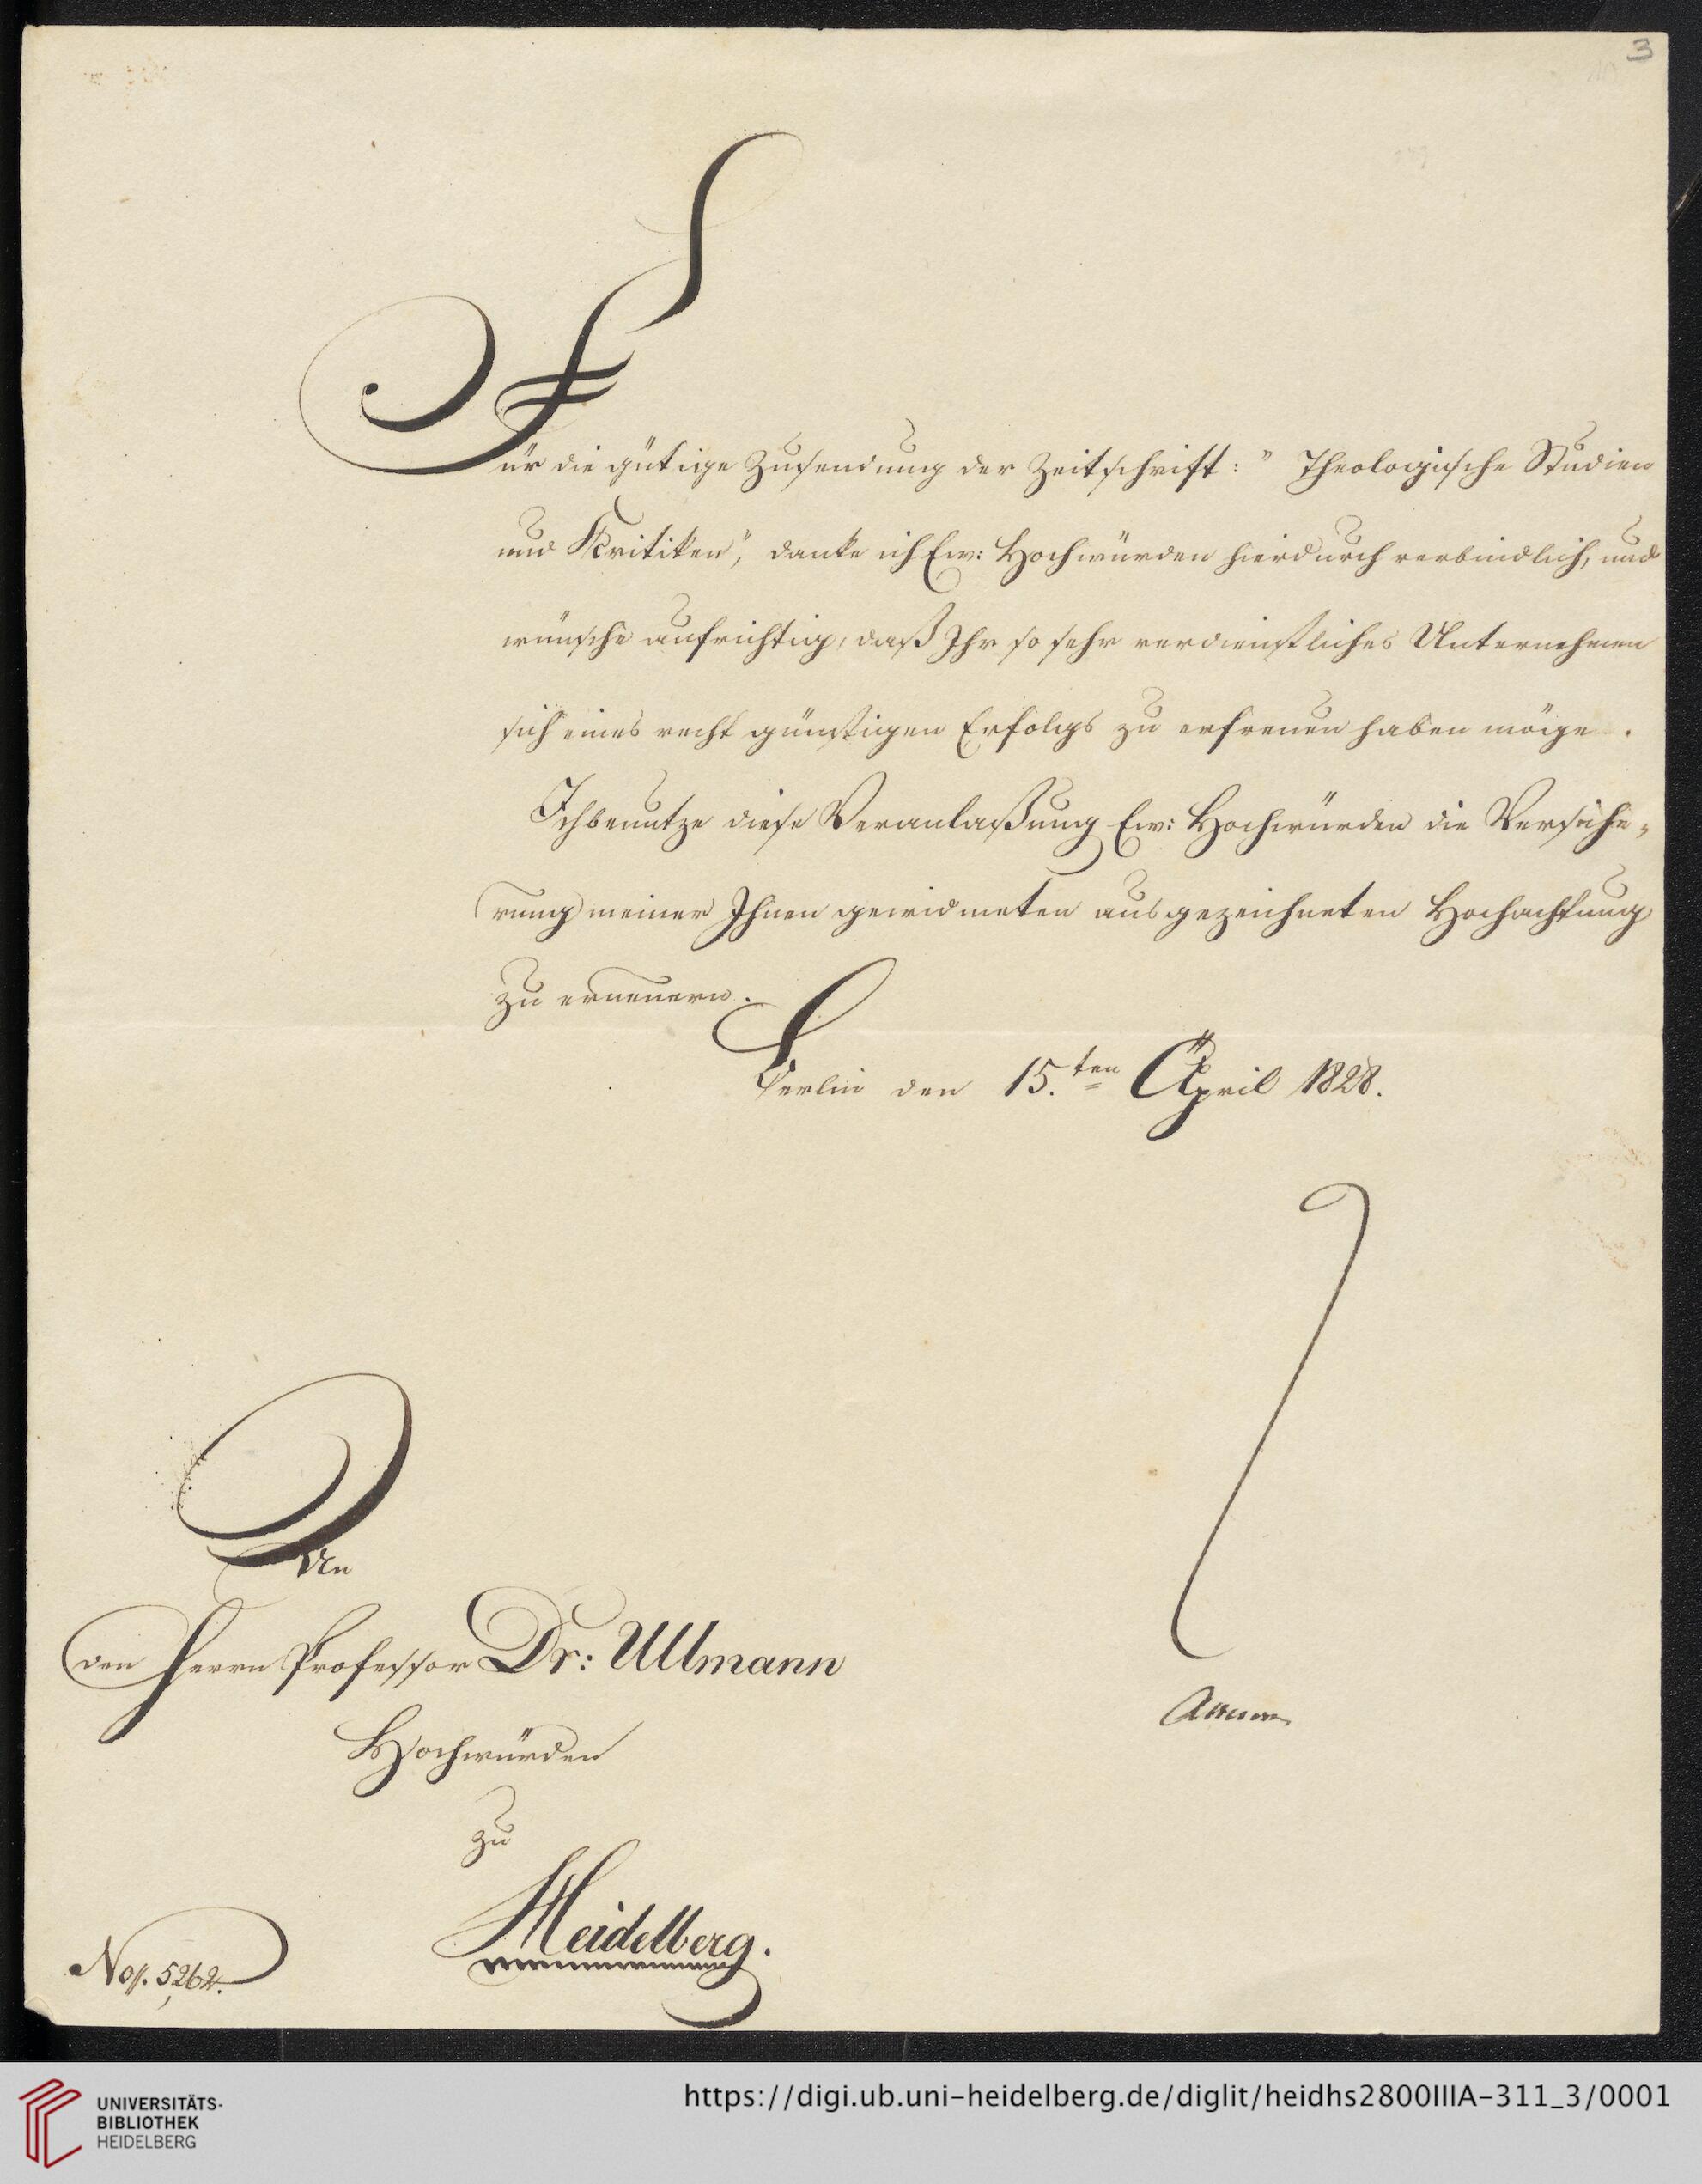 3
Für die gütige Zusendung der Zeitschrift: „Theologische Studien
und Kritiken", danke ich Ew: Hochwürden hierdurch verbindlich, und
wünsche aufrichtig, daß Ihr so sehr verdienstliches Unternehmen
sich eines recht günstigen Erfolgs zu erfreuen haben möge.
Ich benutze diese Veranlaßung Ew: Hochwürden die Versiche=
rung meiner Ihnen gewidmeten ausgezeichneten Hochachtung
zu erneuern.
Berlin den 15.ten April 1828.
An
den Herrn Professor Dr: Ullmann
Hochwürden
zu
Heidelberg.
No. 5262.
UNIVERSITÄTS-
BIBLIOTHEK
HEIDELBERG
https://digi.ub.uni-heidelberg.de/diglit/heidhs2800IIIA-311_3/0001